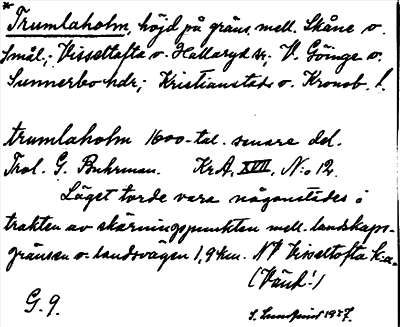 * Trumlaholm, höjd på gräns mell. Skåne o.
Smål.; Visseltofta o. Hallaryd sr; V. Göinge o.
Sunnerbo hdr; Kristianstads o. Kronob. l.
trumlaholm 1600-tal. senare del.
Trol. G. Buhrman. KrA, XVII, N:o 12.
Läget torde vara någonstädes i
trakten av skärningspunkten mell. landskaps-
gränsen o. landsvägen 1,9 km. NV Visseltofta k:a.
(Vänd!)
G. 9.
1927.